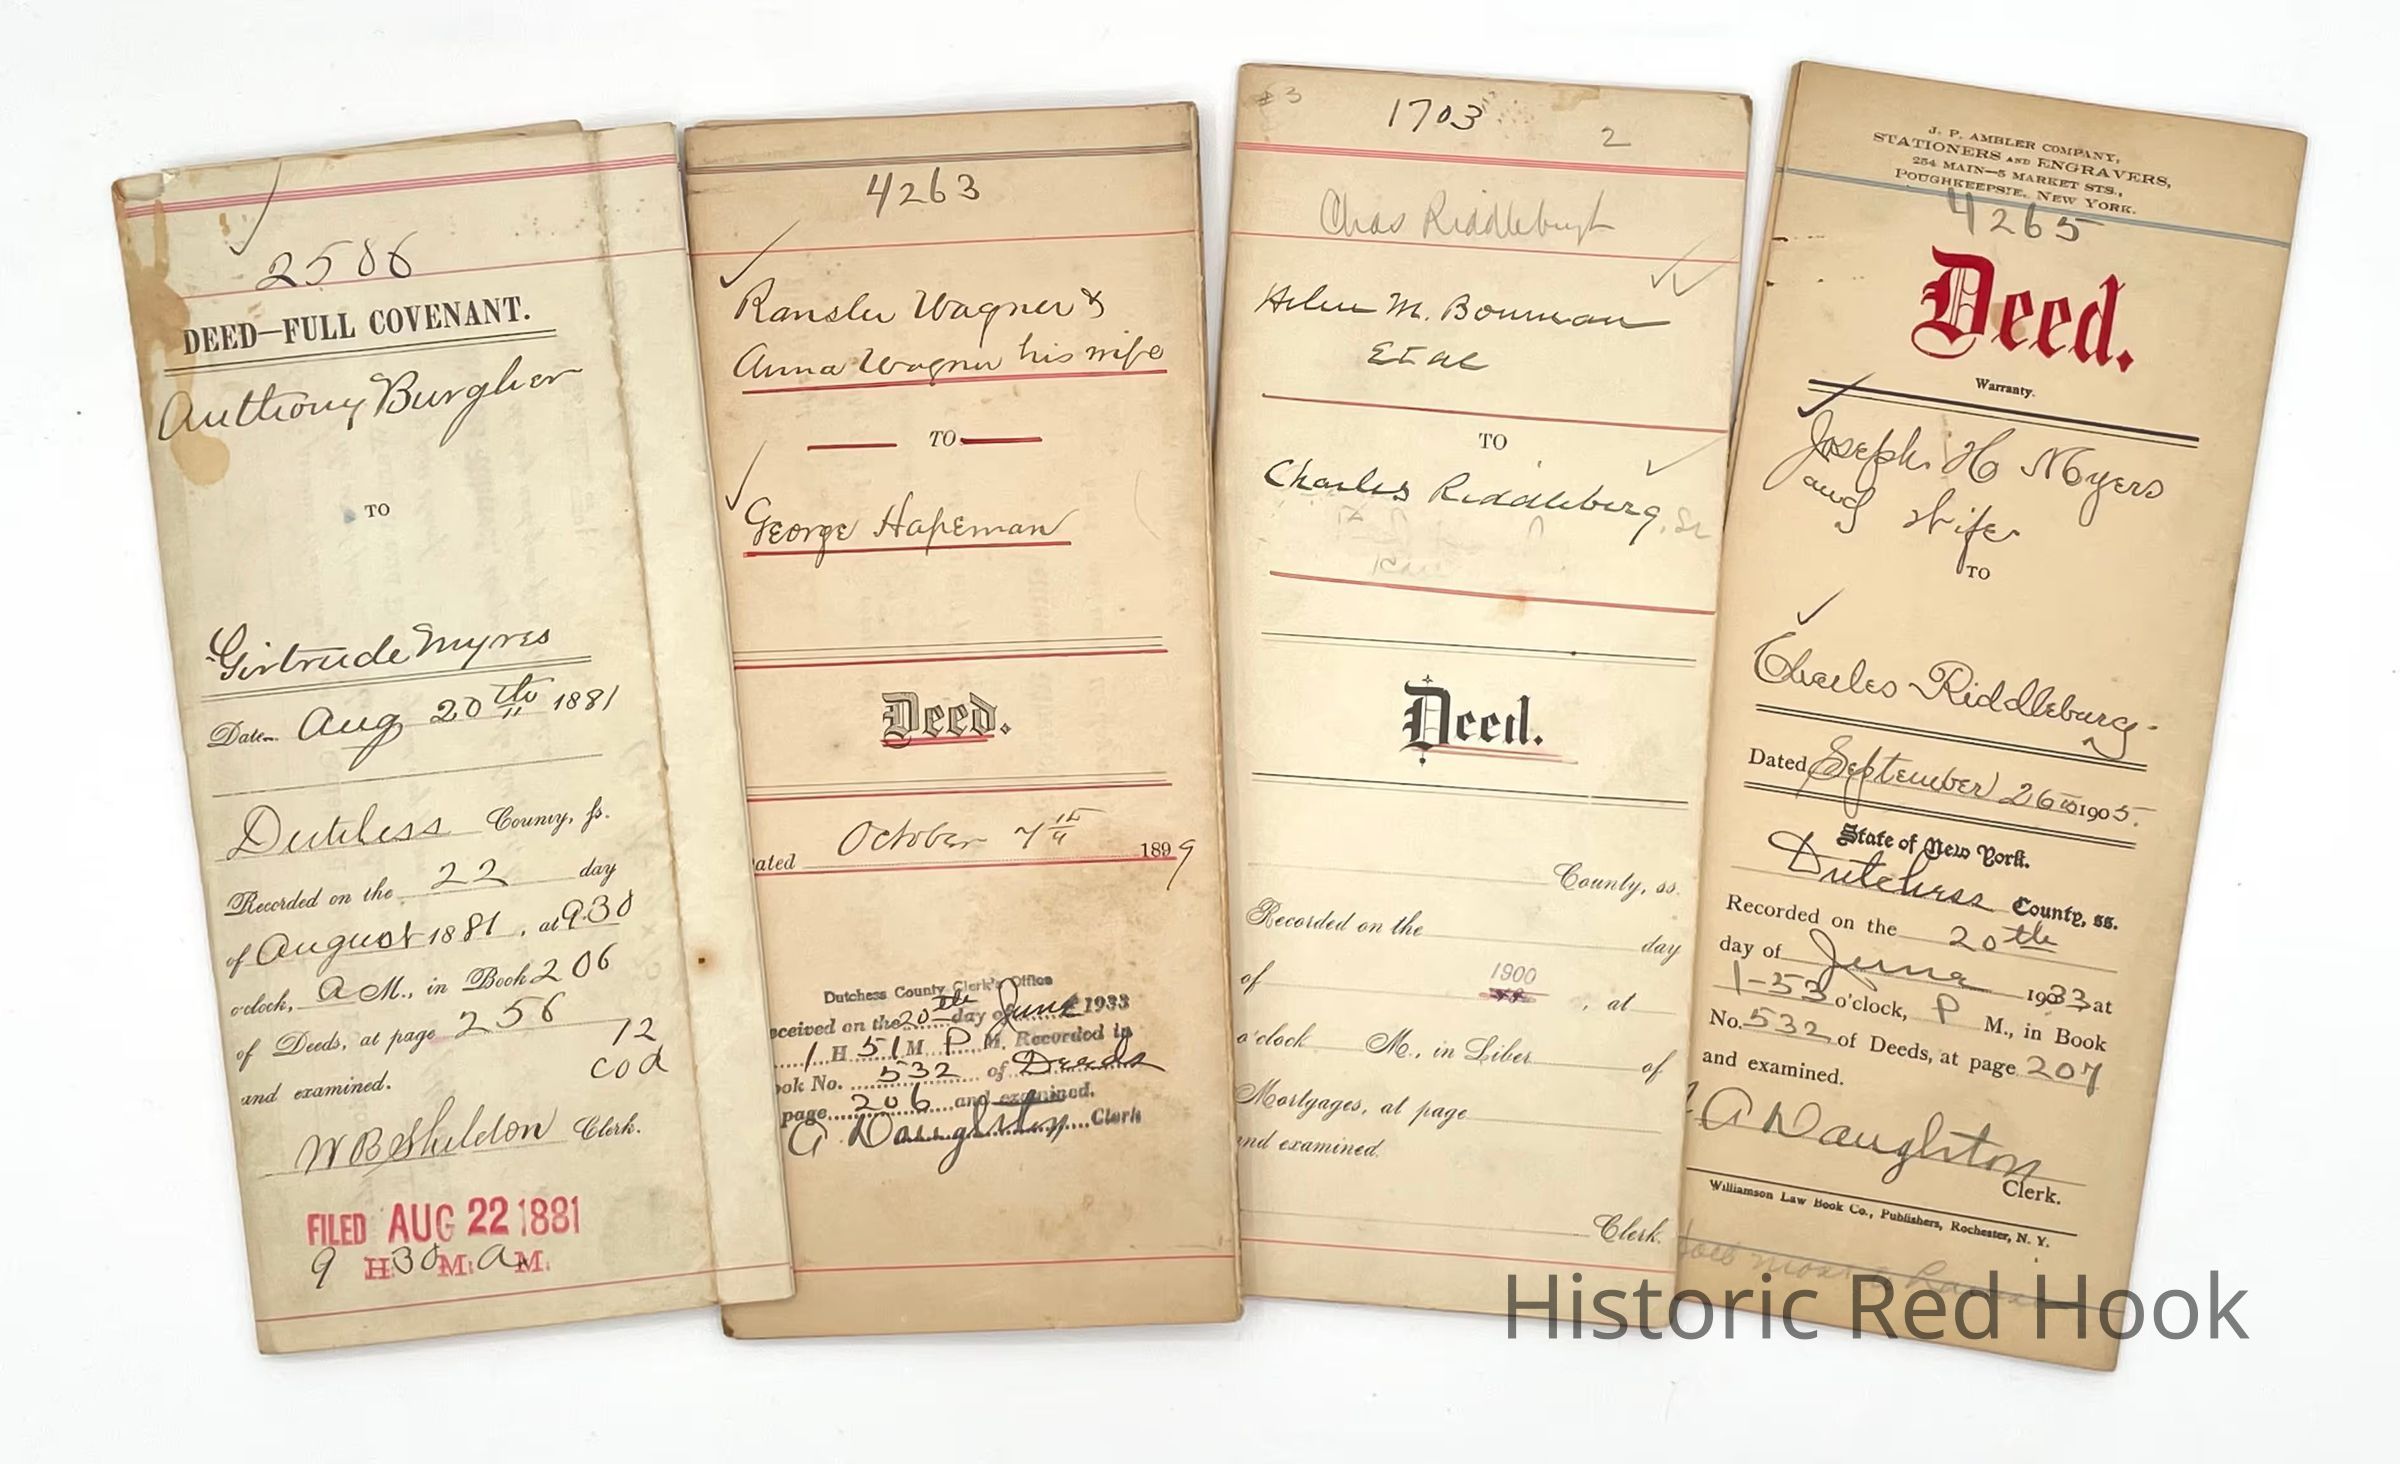 2586
DEED—FULL COVENANT.
Anthony Burgher
TO
Girtrude Myres
Date Aug 20th 1881
Dutchess County, ss.
Recorded on the 22 day
of August 1881, at 9.30
o'clock, A M., in Book 206
of Deeds, at page 256
12
cod
and examined.
W B Sheldon Clerk.
FILED AUG 22 1881
9 H. 30 M. a M.
4263
Ransler Wagner &
Anna Wagner his wife
TO
George Hapeman
Deed.
ated October 7th 1899
Dutchess County Clerk's Office
eceived on the 20th day of June 1933
1 H 51 M P M. Recorded in
ook No. 532 of Deeds
page 206 and examined.
A Daughton Clerk
3
1703
2
Chas Riddleburgh
Helen M. Bowman
Et al
TO
Charles Riddleberg, Sr
Deed.
County, ss.
Recorded on the day
of 1900, at
o'clock M., in Liber of
Mortgages, at page
and examined.
Clerk.
J. P. AMBLER COMPANY,
STATIONERS AND ENGRAVERS,
254 MAIN—5 MARKET STS.,
POUGHKEEPSIE, NEW YORK.
4265
Deed.
Warranty.
Joseph H Myers
and Wife
TO
Charles Riddleburg.
Dated September 26th 1905.
State of New York.
Dutchess County, ss.
Recorded on the 20th
day of June 1933 at
1-53 o'clock, P M., in Book
No. 532 of Deeds, at page 207
and examined.
A Daughton
Clerk.
Williamson Law Book Co., Publishers, Rochester, N. Y.
Historic Red Hook